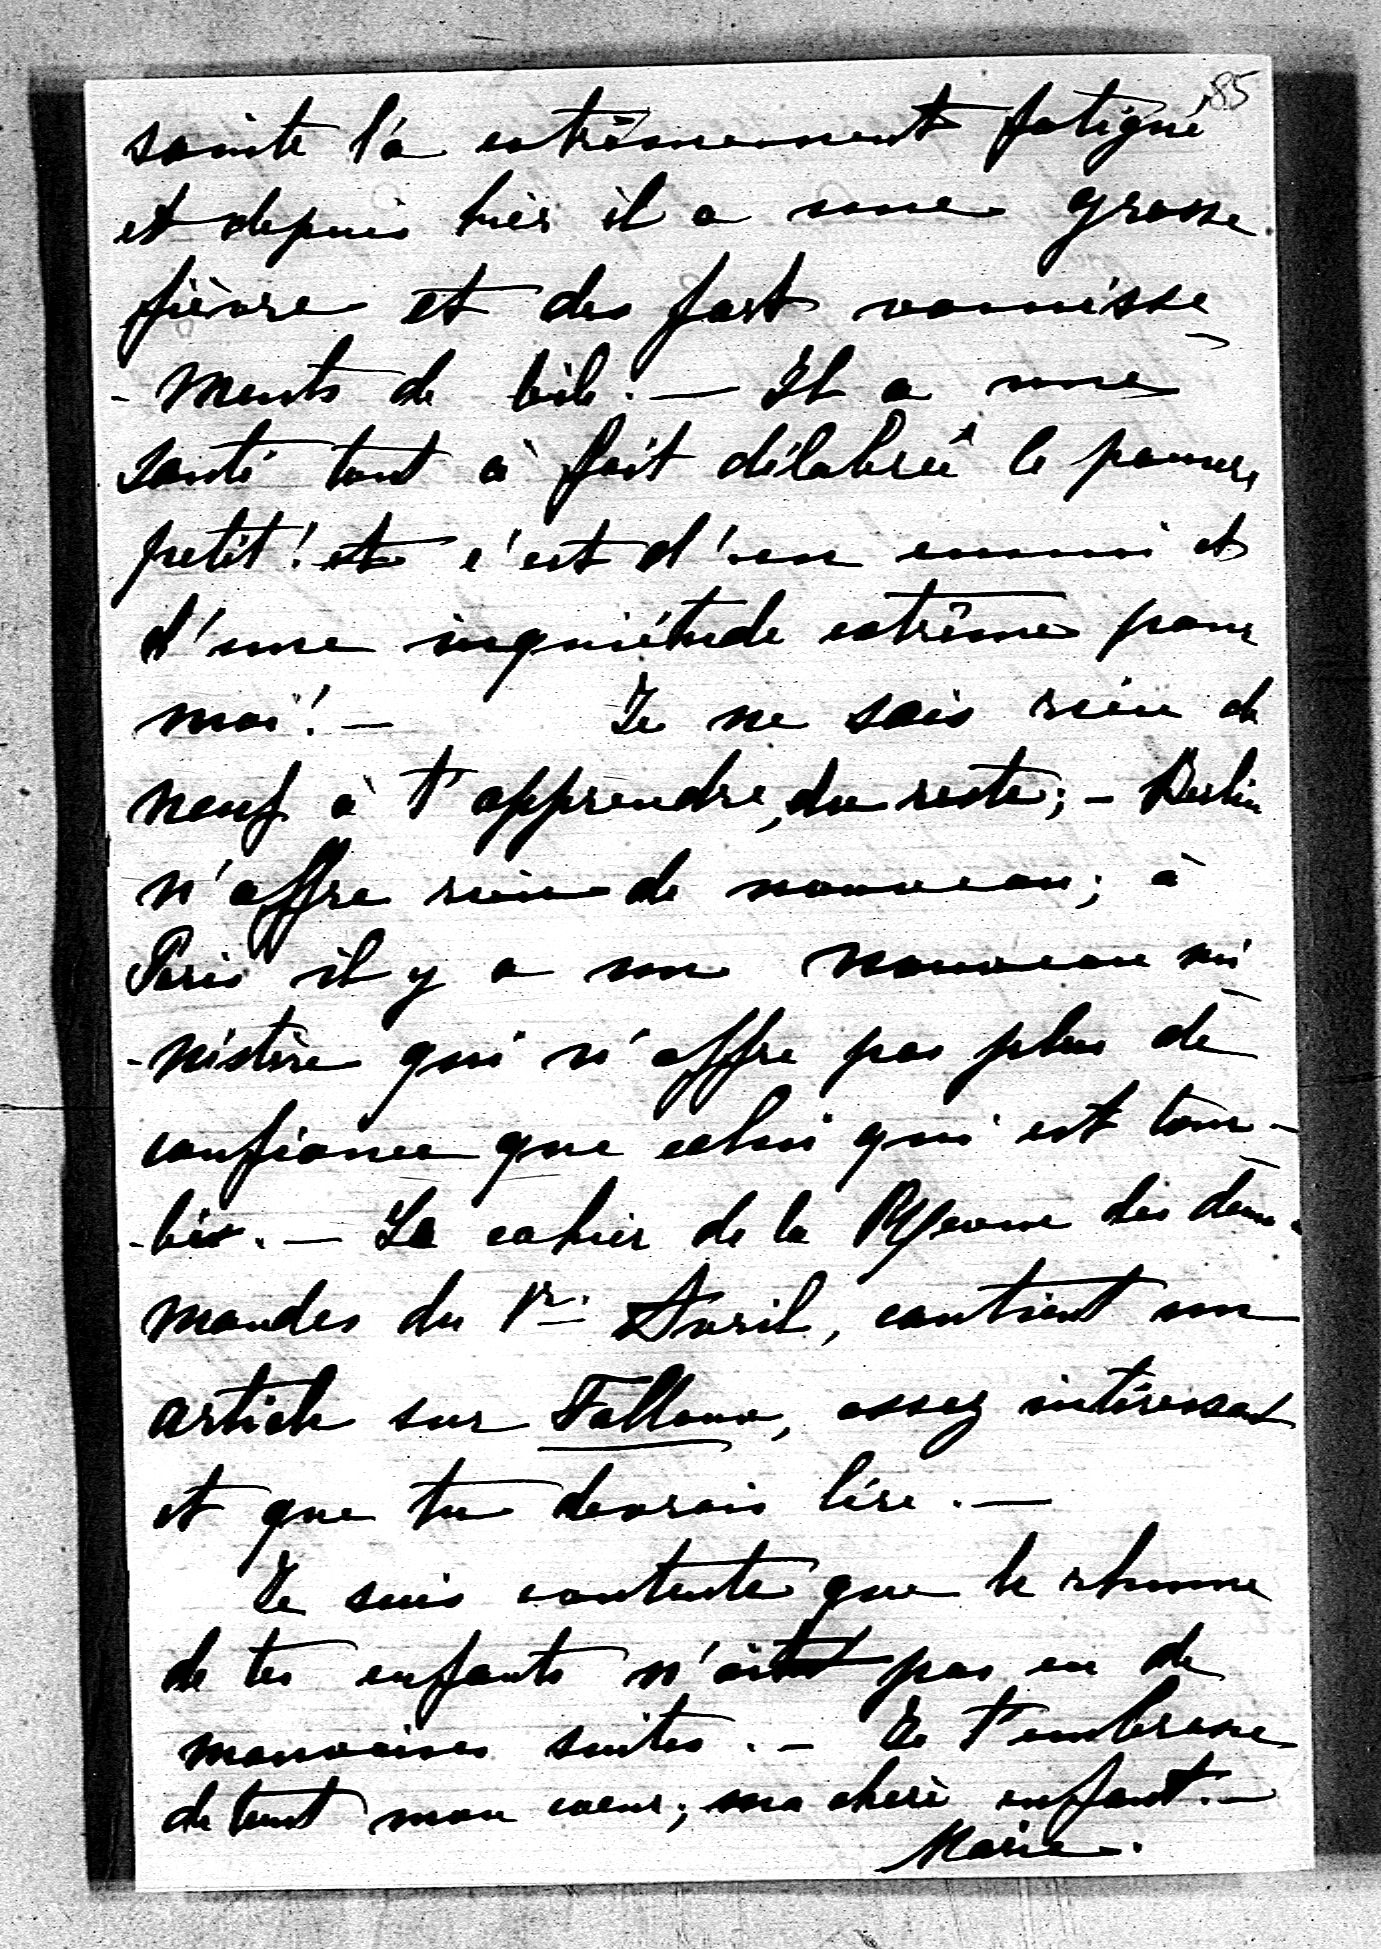 85
sainte l'a extrêmement fatigué
et depuis hièr il a une grosse
fièvre et des fort vomisse
-ments de bile. — Il a une
santé tout à fait délabrée le pauvre
petit! et c'est d'un ennui et
d'une inquiétude extrême pour
moi! — Je ne sais rien de
neuf à t'apprendre, du reste; — Berlin
n'offre rien de nouveau; à
Paris il y a un nouveau mi
-nistère qui n'offre pas plus de
confiance que celui qui est tom-
-bé. — Le cahier de la Revue des deux
mondes du 1er Avril, contient un
article sur Falloux, assez intéressant
et que tu devrais lire. —
Je suis contente que le rhume
de tes enfants n'ait pas eu de
mauvaises suites. — Je t'embrasse
de tout mon coeur; ma chère enfant. —
Marie.